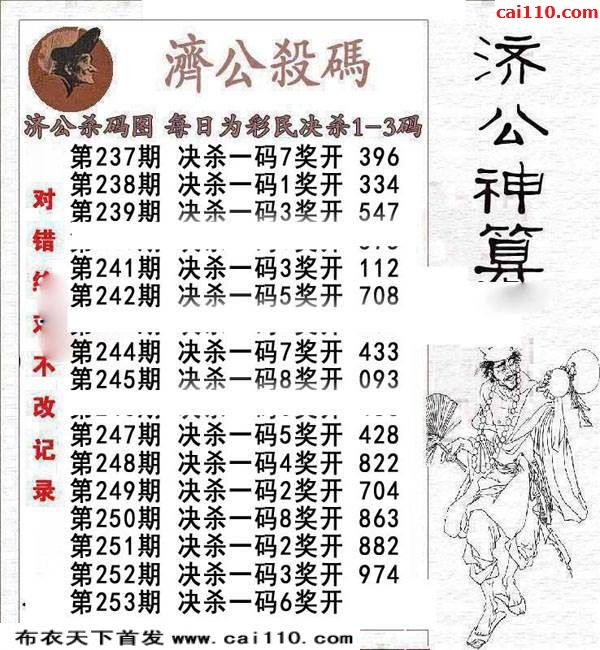 cai110.com
濟公殺碼
济公神算
济公杀码图 每日为彩民决杀1-3码
第237期 决杀一码7奖开 396
第238期 决杀一码1奖开 334
第239期 决杀一码3奖开 547
第241期 决杀一码3奖开 112
第242期 决杀一码5奖开 708
第244期 决杀一码7奖开 433
第245期 决杀一码8奖开 093
第247期 决杀一码5奖开 428
第248期 决杀一码4奖开 822
第249期 决杀一码2奖开 704
第250期 决杀一码8奖开 863
第251期 决杀一码2奖开 882
第252期 决杀一码3奖开 974
第253期 决杀一码6奖开
对错 不改记录
布衣天下首发 www.cai110.com